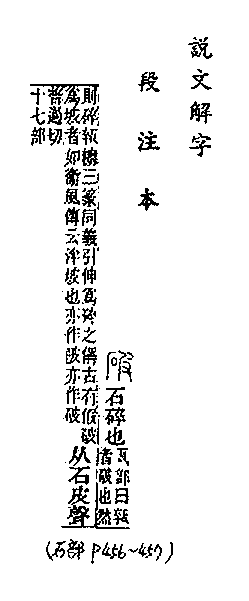 說文解字
段注本
石碎也
瓦部曰㼹
者破也然
則碎㼹䊳三篆同義引伸爲碎之偁古有假破
爲坡者如衞風傳云泮坡也亦作陂亦作破
从石皮聲
普過切
十七部
(石部 P456~457)